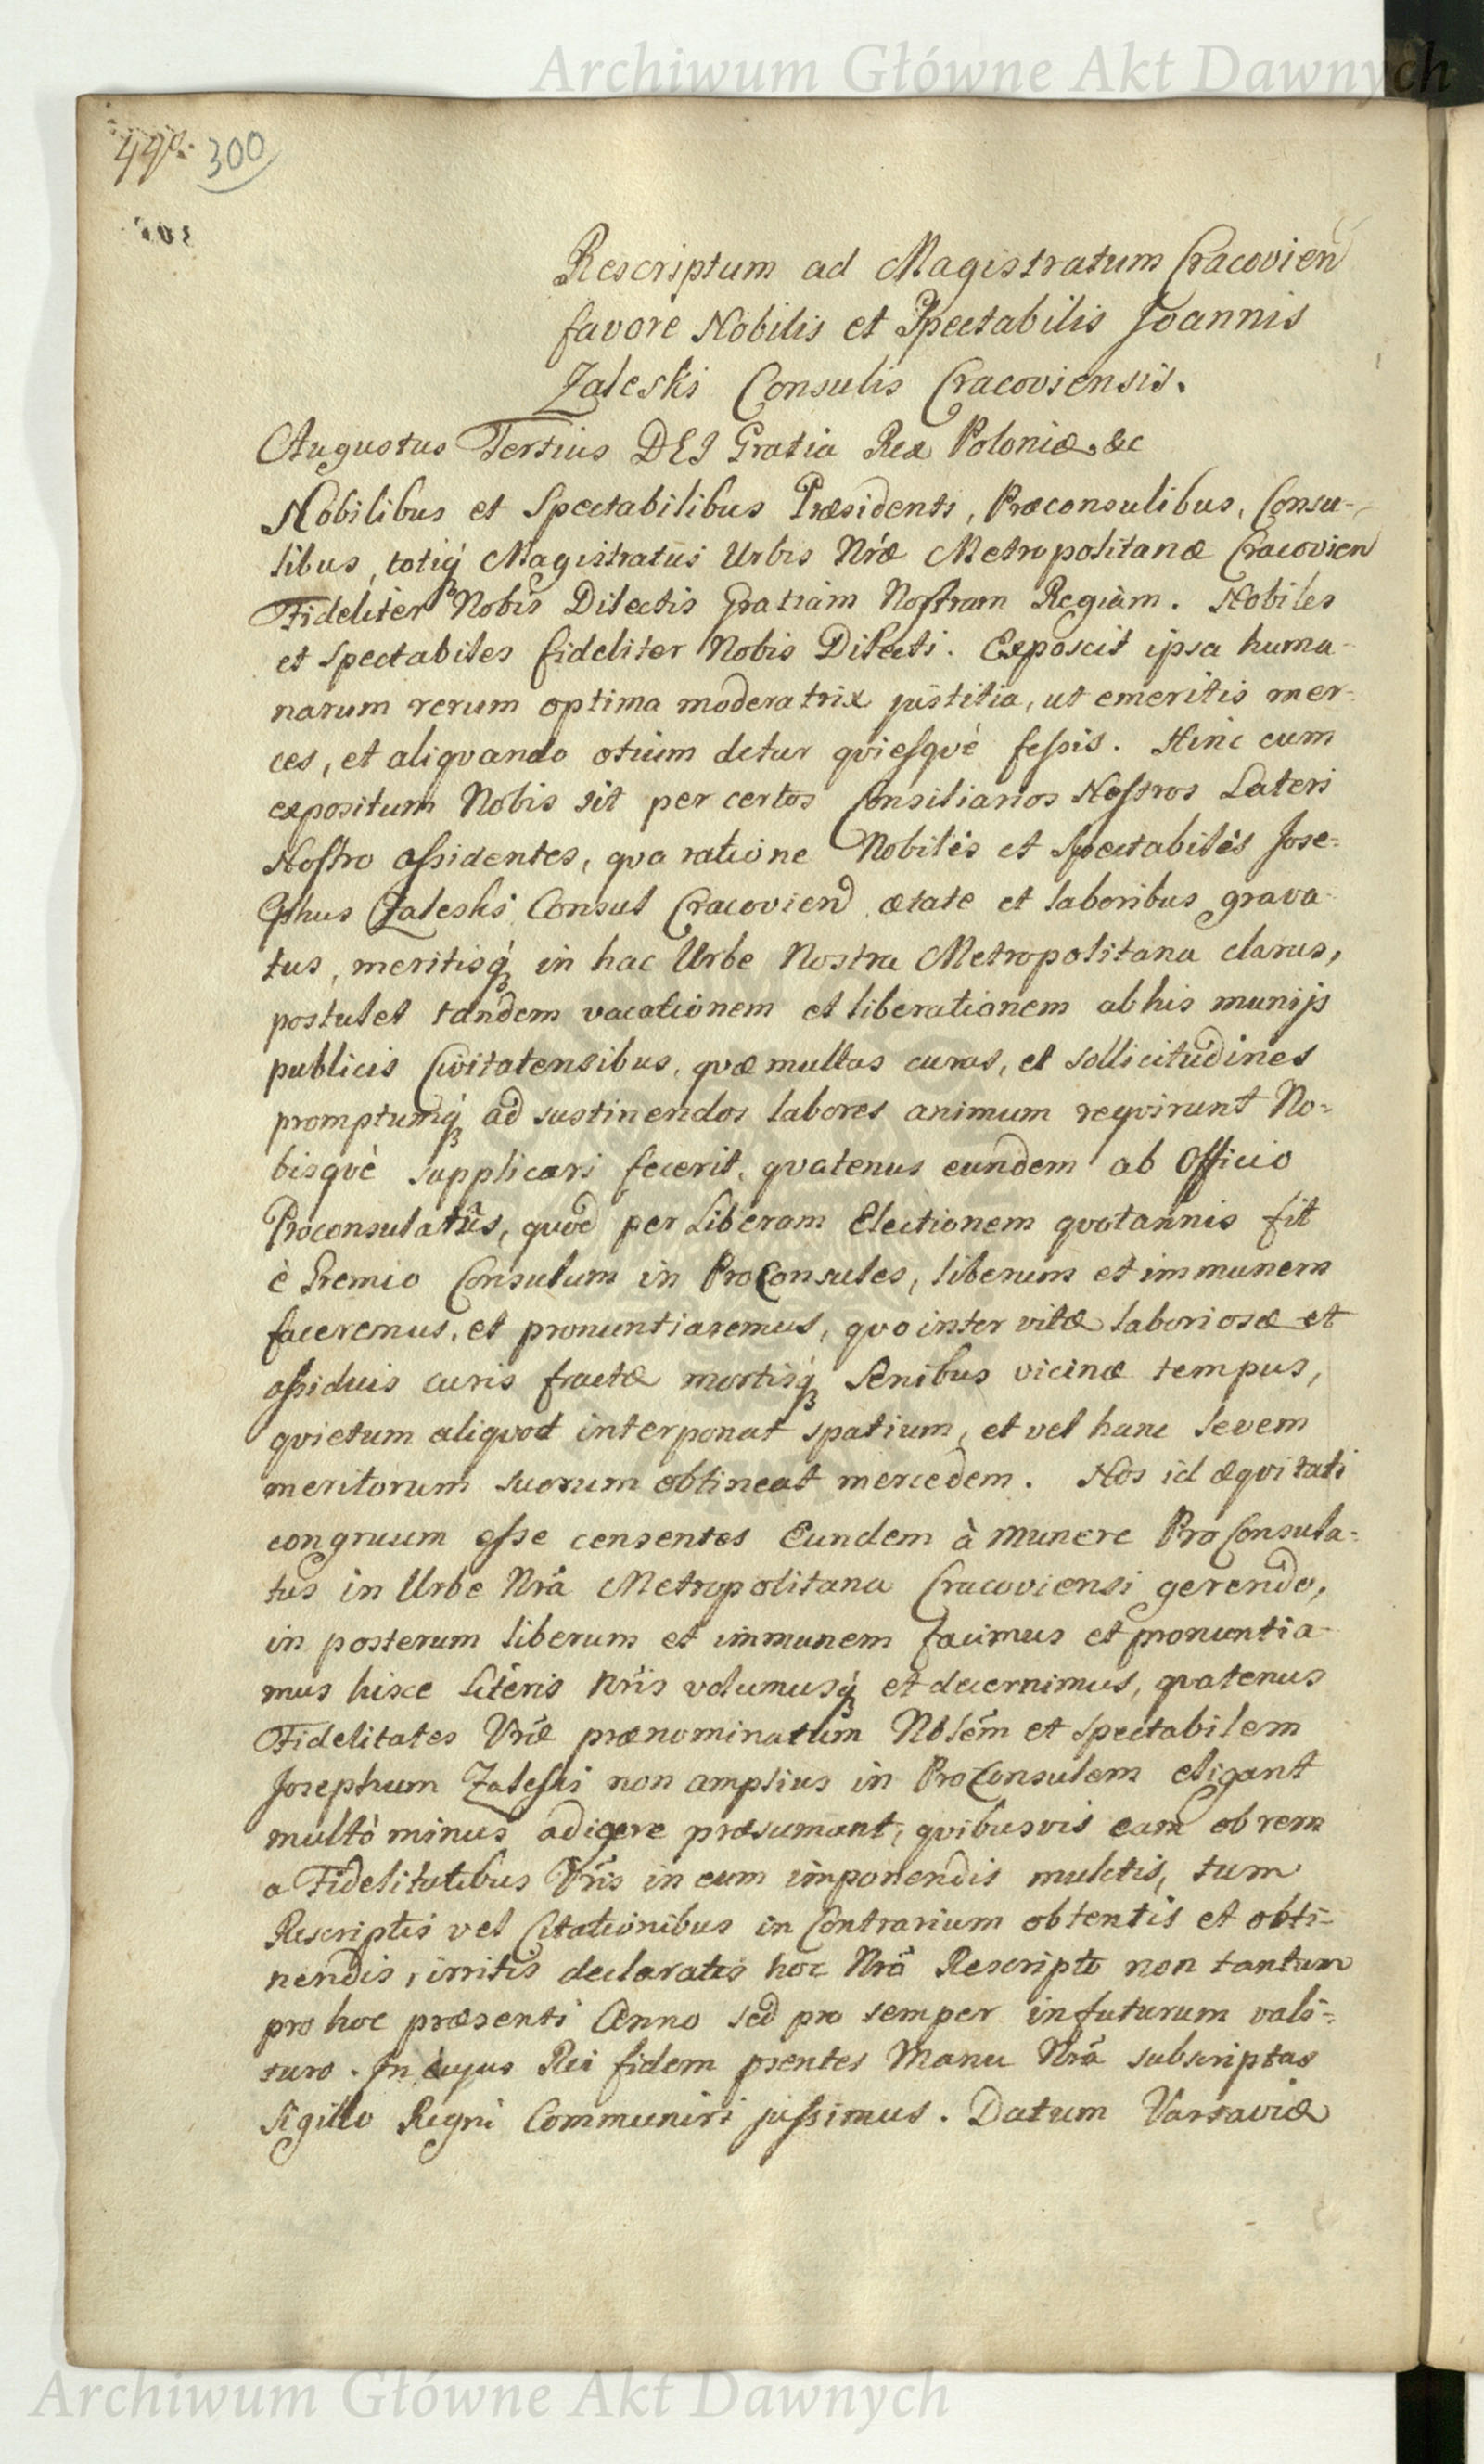 Archiwum Główne Akt Dawnych
300
Rescriptum ad Magistratum Cracovien
favore Nobilis et Spectabilis Joannis
Zaleski Consulis Cracoviensis.
Augustus Tertius DEI Gratia Rex Poloniæ &c
Nobilibus et Spectabilibus Præsidenti, Proconsulibus, Consu-
libus, totiq́ Magistratui Urbis Nr̃æ Metropolitanæ Cracovien
Fideliter Nobis Dilectis Gratiam Nostram Regiam. Nobiles
et Spectabiles fideliter Nobis Dilecti. Exposcit ipsa huma-
narum rerum optima moderatrix justitia, ut emeritis mer-
ces, et aliqvando otium detur qviesqvè fessis. Hinc cum
expositum Nobis sit per certos Consiliarios Nostros Lateri
Nostro assidentes, qva ratione Nobilis et Spectabilis Jose-
phus Zaleski Consul Cracovien ætate et laboribus grava-
tus, meritisq́ in hac Urbe Nostra Metropolitana clarus,
postulet tandem vacationem et liberationem ab his munijs
publicis Civitatensibus, qvæ multas curas, et sollicitudines
promptumq́ ad sustinendos labores animum reqvirunt No-
bisqvè supplicari fecerit, qvatenus eundem ab Officio
Proconsulatûs, quod per Liberam Electionem qvotannis fit
è Gremio Consulum in ProConsules, liberum et immunem
faceremus, et pronuntiaremus, qvo inter vitæ laboriosæ et
assiduis curis fractæ mortisq́ Senibus vicinæ tempus,
qvietum aliqvod interponat spatium, et vel hanc levem
meritorum suorum obtineat mercedem. Nos id æqvitati
congruum esse censentes Eundem à Munere ProConsula-
tus in Urbe Nrã Metropolitana Cracoviensi gerendo,
in posterum liberum et immunem facimus et pronuntia-
mus hisce Literis Nr̃is volumusq́ et decernimus, qvatenus
Fidelitates Vr̃æ prænominatum Nblem̃ et Spectabilem
Josephum Zaleski non amplius in ProConsulem eligant
multò minus adigere præsumant, qvibusvis eam ob rem
a Fidelitatibus Vr̃is in eum imponendis mulctis, tum
Rescriptis vel Citationibus in Contrarium obtentis et obti-
nendis, irritis declaratis hoc Nrõ Rescripto non tantum
pro hoc præsenti Anno sed pro semper in futurum vali-
turo. In cujus Rei fidem pr̃entes Manu Nrã subscriptas
Sigillo Regni Communiri jussimus. Datum Varsaviæ
Archiwum Główne Akt Dawnych